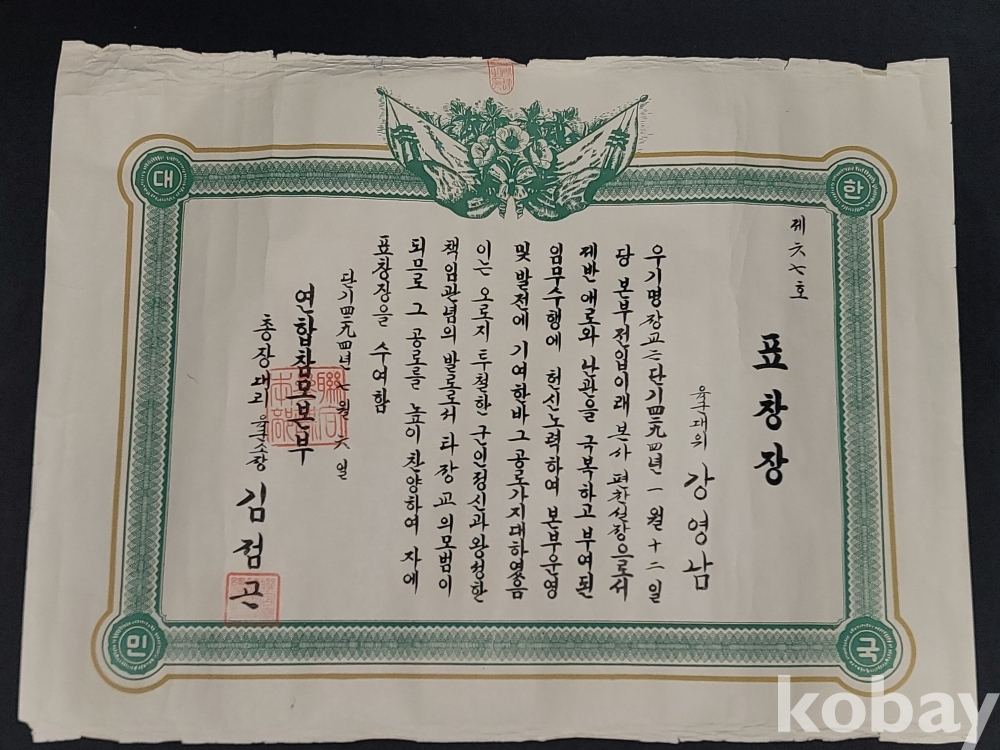 대
한
민
국
제六七호
표창장
육군대위 강영남
우기명장교는단기四二九四년一월十二일
당 본부전입이래 본사 편찬실장으로서
제반 애로와 난관을 극복하고 부여된
임무수행에 헌신노력하여 본부운영
및 발전에 기여한바 그 공로가지대하였음
이는 오로지 투철한 군인정신과왕성한
책임관념의 발로로서 타장교의모범이
되므로 그 공로를 높이찬양하여 자에
표창장을 수여함
단기四二九四년七월六일
연합참모본부
총장대리 육군소장 김점곤
kobay